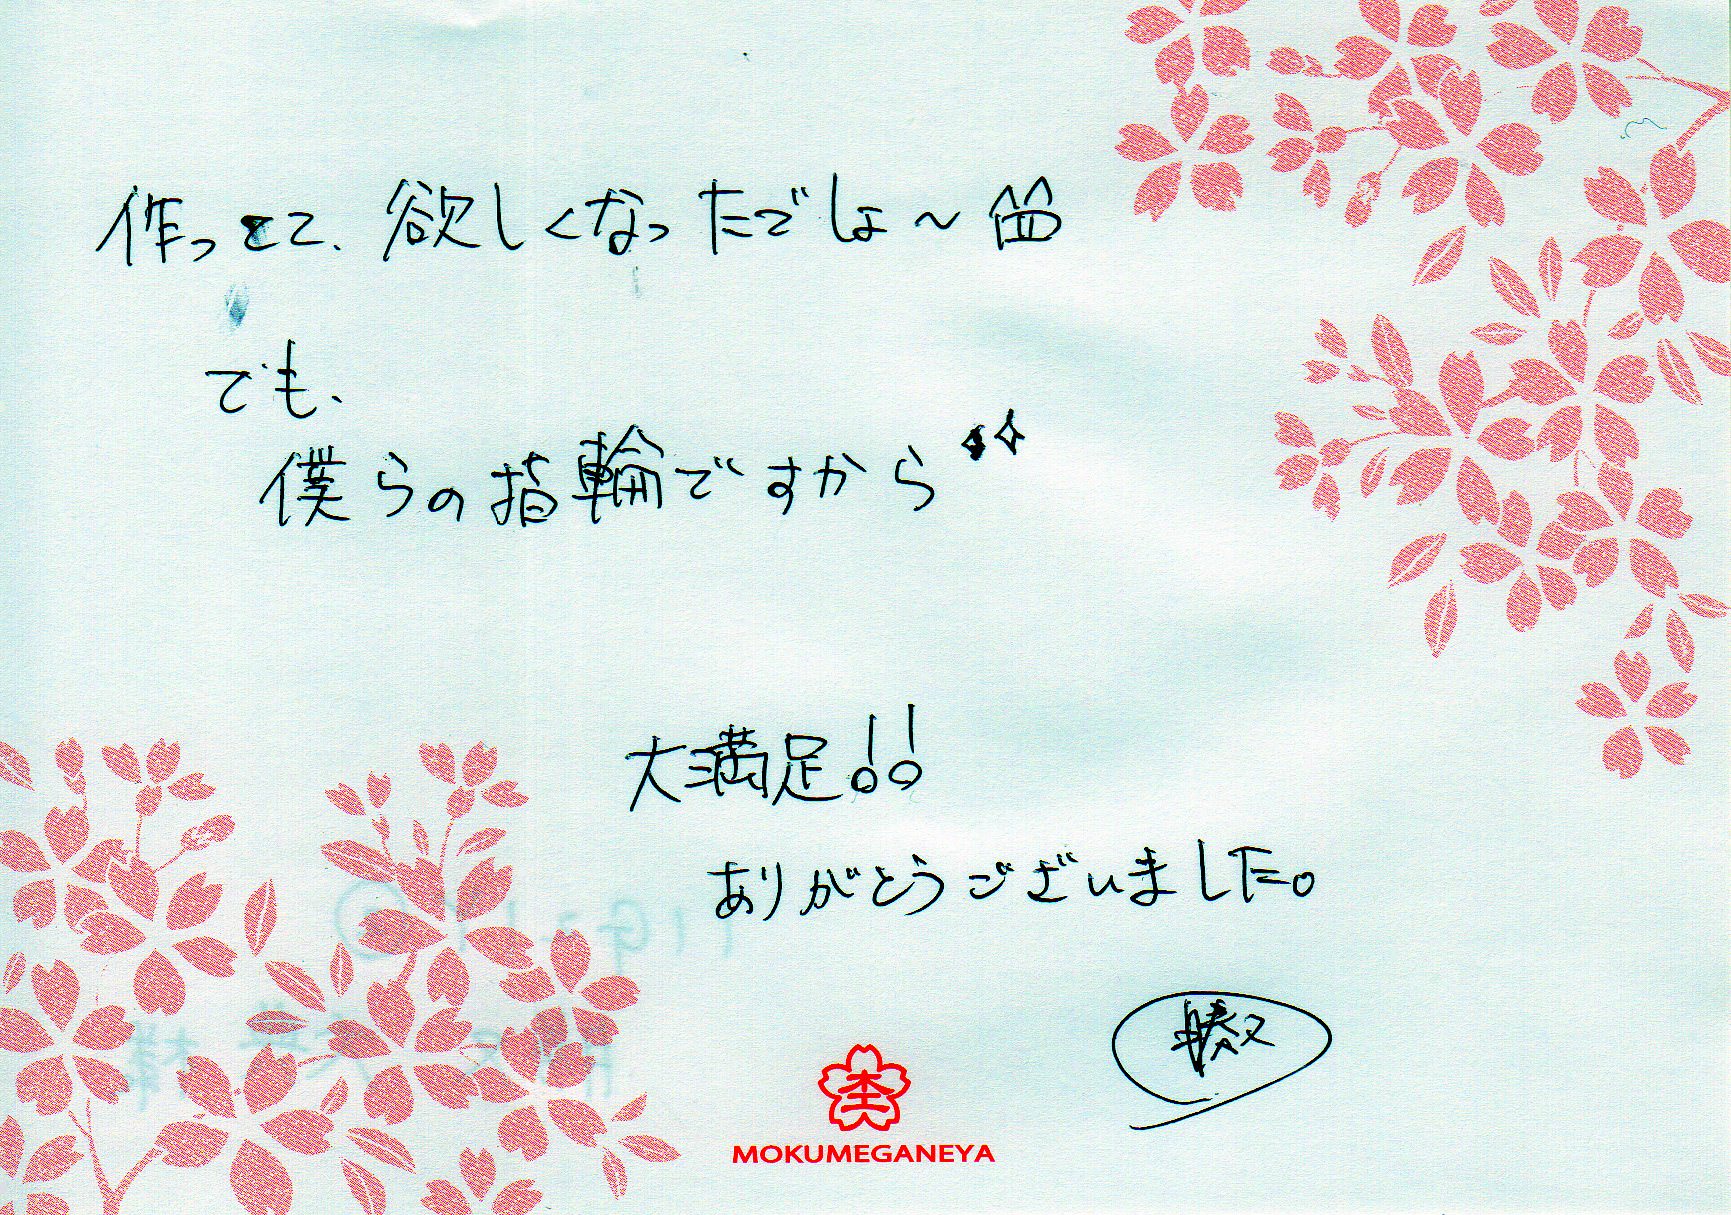 作ってて、欲しくなったでしょ～
でも、
僕らの指輪ですから
大満足!!
ありがとうございました。
杢
MOKUMEGANEYA